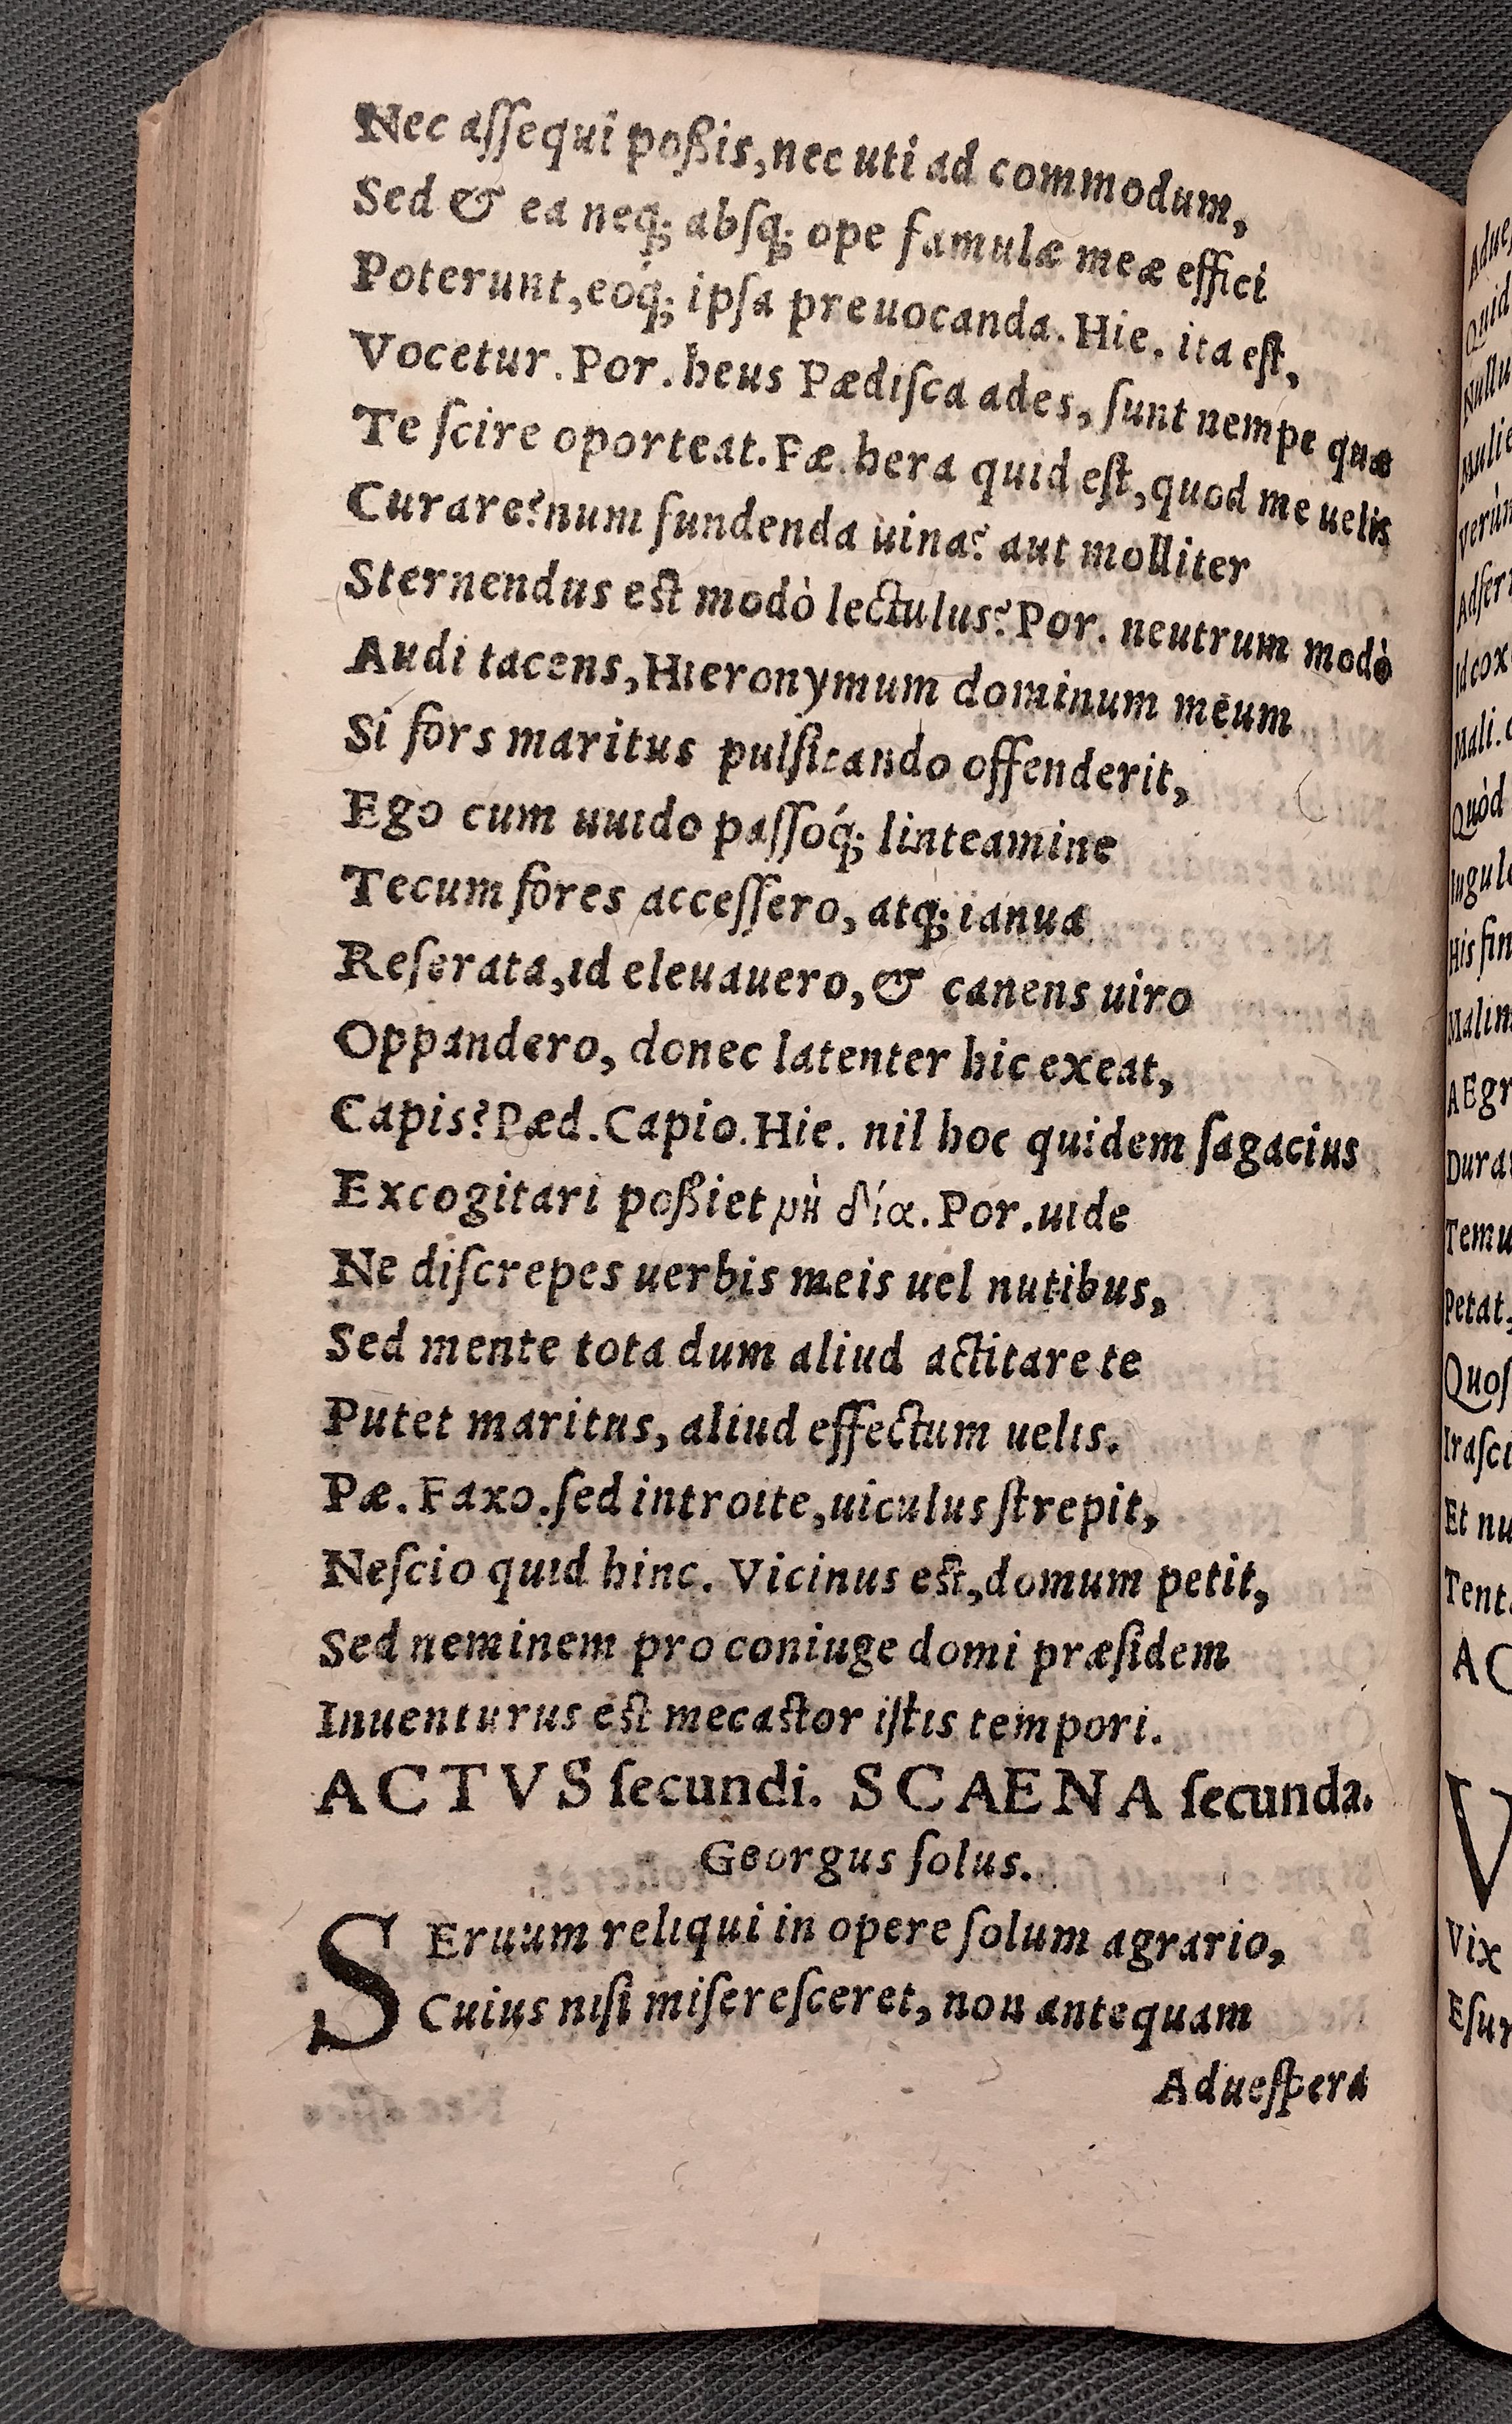 Nec aſſequi poßis, nec uti ad commodum,
Sed & ea neq; abſq; ope famulæ meæ effici
Poterunt, eoq́; ipſa preuocanda. Hie. ita eſt,
Vocetur. Por. heus Pædiſca ades, ſunt nempe quæ
Te ſcire oporteat. Pæ. hera quid eſt, quod me uelis
Curare? num fundenda uina? aut molliter
Sternendus eſt modò lectulus? Por. neutrum modò
Audi tacens, Hieronymum dominum meum
Si fors maritus pulſitando offenderit,
Ego cum uuido paſſoq́; linteamine
Tecum fores acceſſero, atq; ianua
Reſerata, id eleuauero, & canens uiro
Oppandero, donec latenter hic exeat,
Capis? Pæd. Capio. Hie. nil hoc quidem ſagacius
Excogitari poßiet μὴ δία. Por. uide
Ne diſcrepes uerbis meis uel nutibus,
Sed mente tota dum aliud actitare te
Putet maritus, aliud effectum uelis.
Pæ. Faxo. ſed introite, uiculus ſtrepit,
Neſcio quid hinc. Vicinus eſt, domum petit,
Sed neminem pro coniuge domi præſidem
Inuenturus eſt mecaſtor iſtis tempori.
ACTVS ſecundi. SCAENA ſecunda.
Georgus ſolus.
SEruum reliqui in opere ſolum agrario,
Cuius niſi miſereſceret, non antequam
Adueſpera
Quid
Verùm
Mali.
Quòd
His
AEgr
Temu
Petat,
Et nu
AC
V
Vix